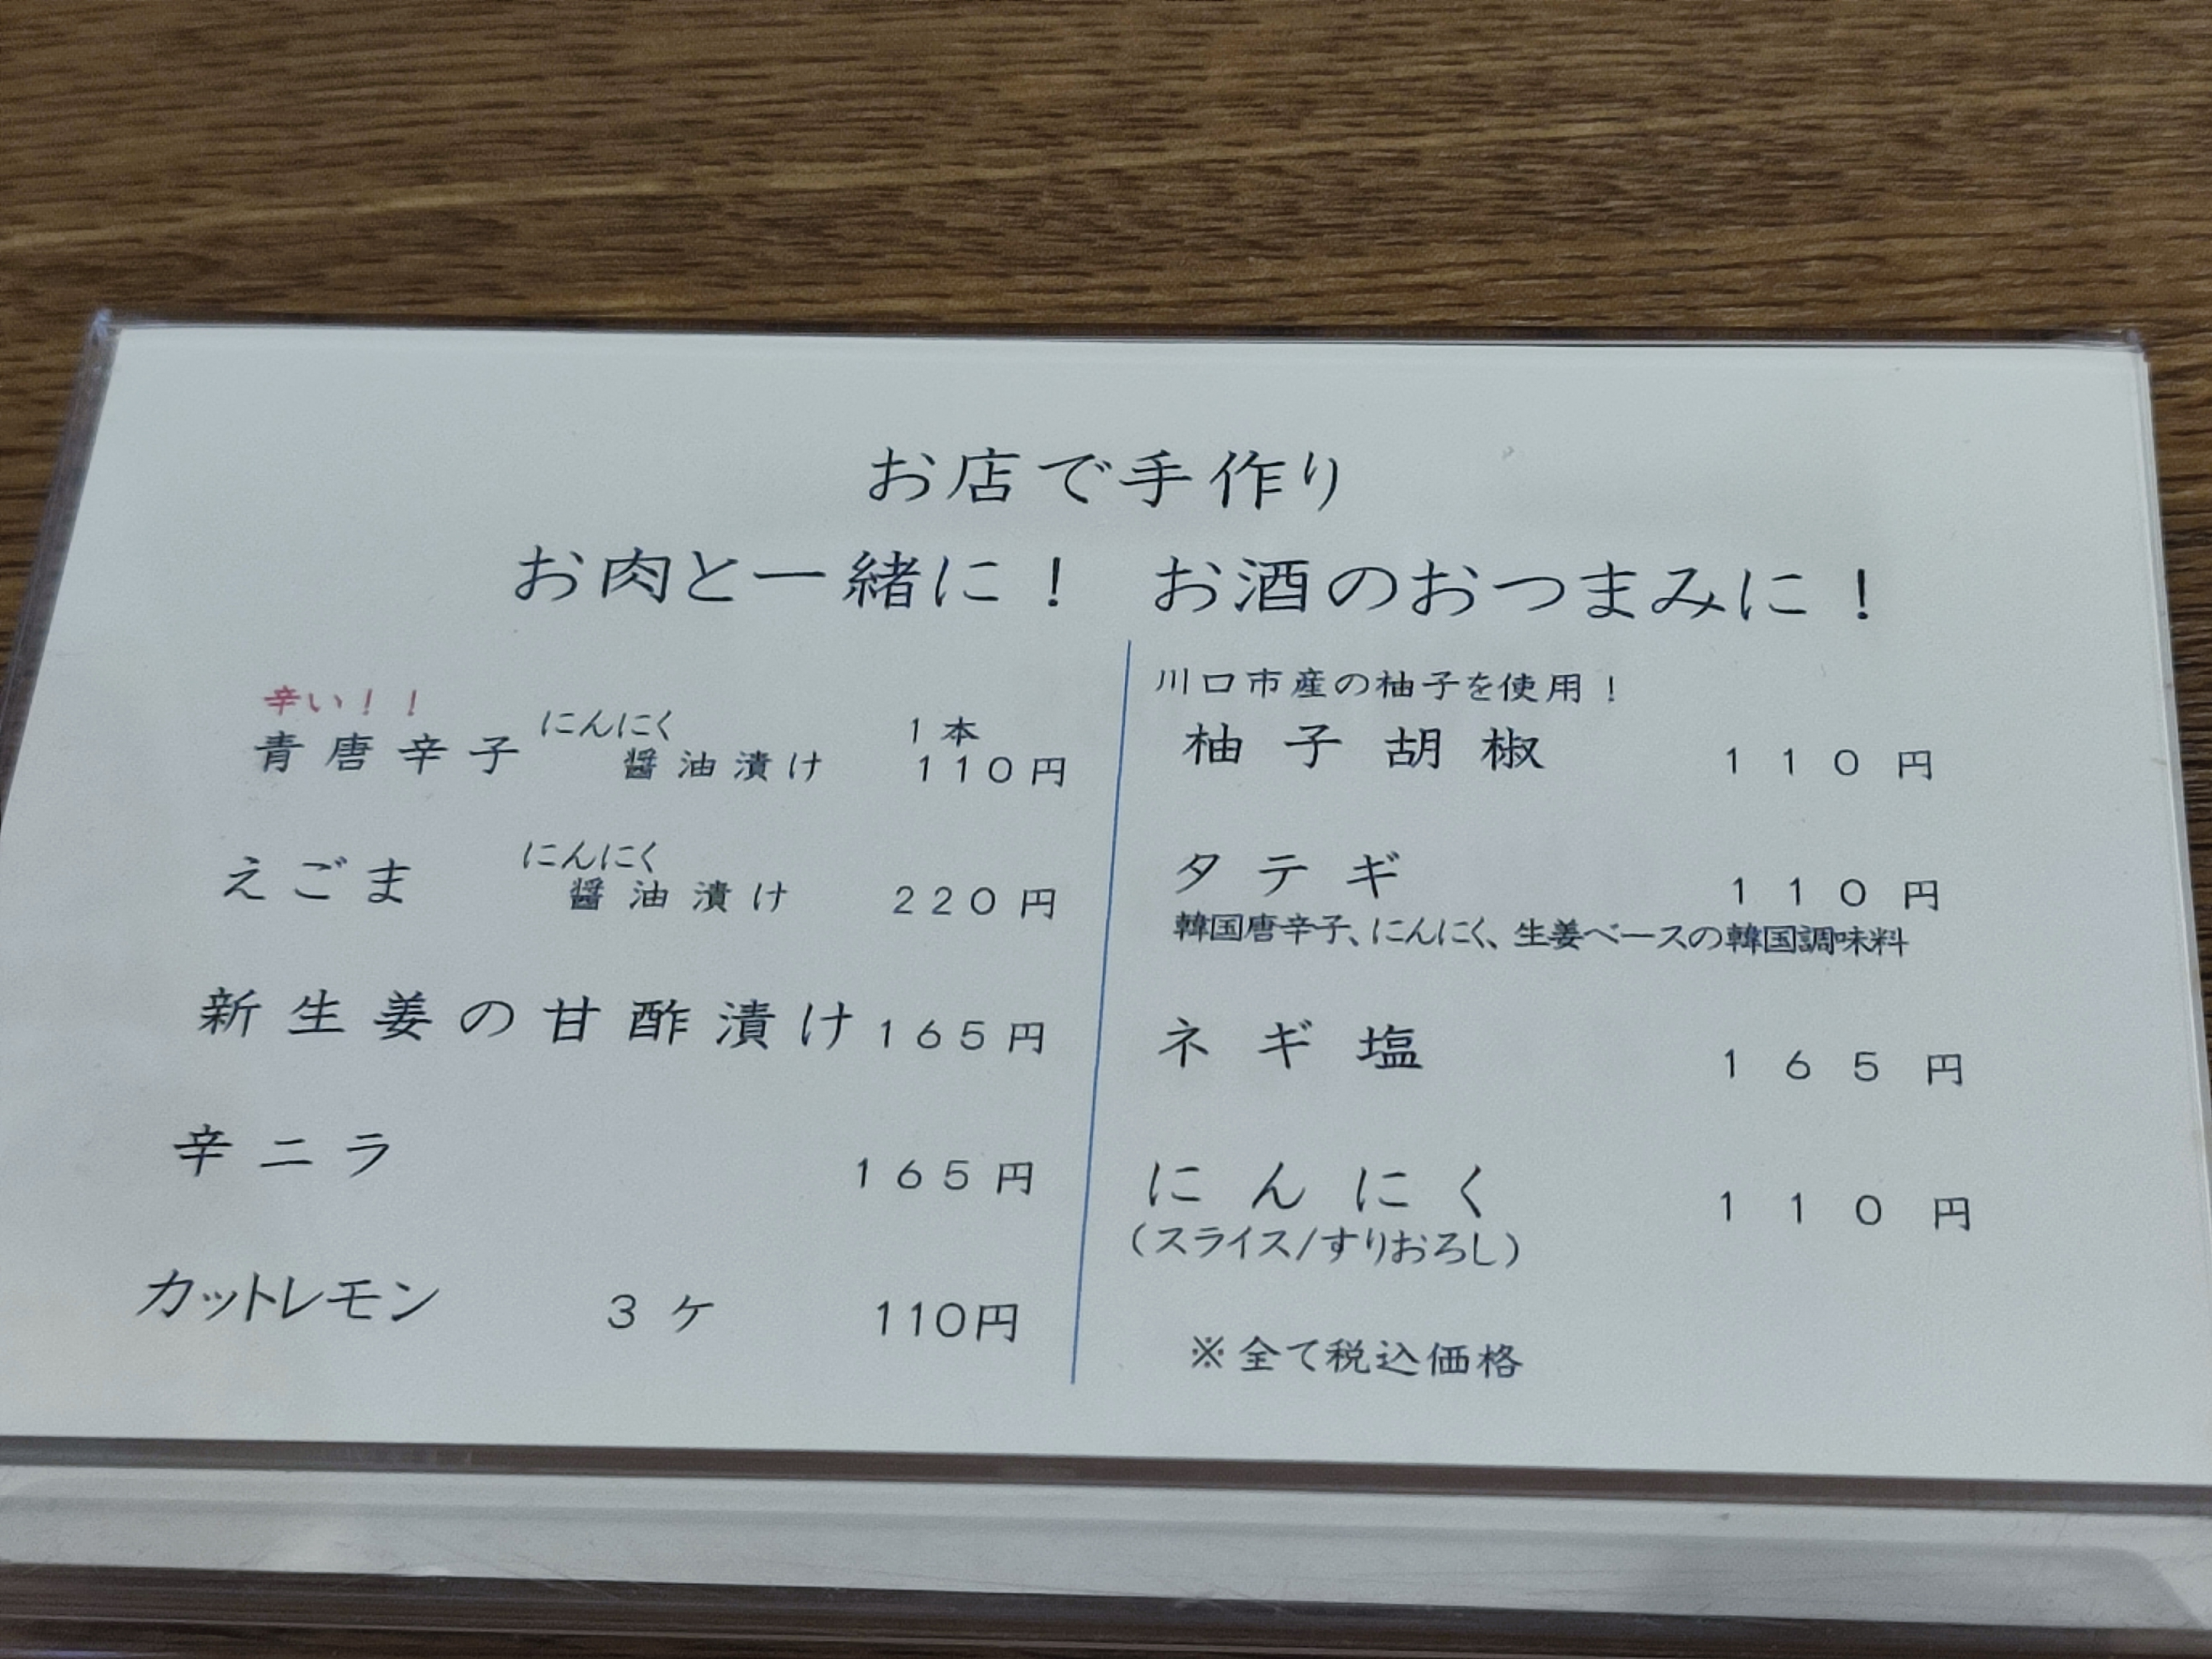 お店で手作り
お肉と一緒に！　お酒のおつまみに！
辛い！！
青唐辛子 にんにく 1本
醤油漬け 110円
えごま にんにく
醤油漬け 220円
新生姜の甘酢漬け 165円
辛ニラ 165円
カットレモン 3ケ 110円
川口市産の柚子を使用！
柚子胡椒 110円
タテギ 110円
韓国唐辛子、にんにく、生姜ベースの韓国調味料
ネギ塩 165円
にんにく 110円
（スライス/すりおろし）
※全て税込価格